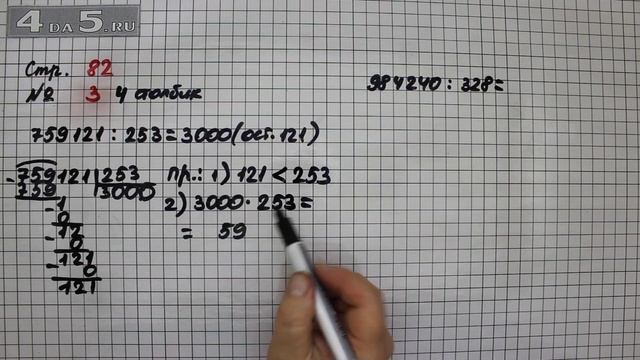 4DA5.RU
Стр. 82
№ 3 4 столбик
759121 : 253 = 3000 (ост. 121)
984240 : 328 =
- 759121 | 253
759 3000
- 1
0
- 12
0
- 121
0
121
пр.: 1) 121 < 253
2) 3000 · 253 =
= 59